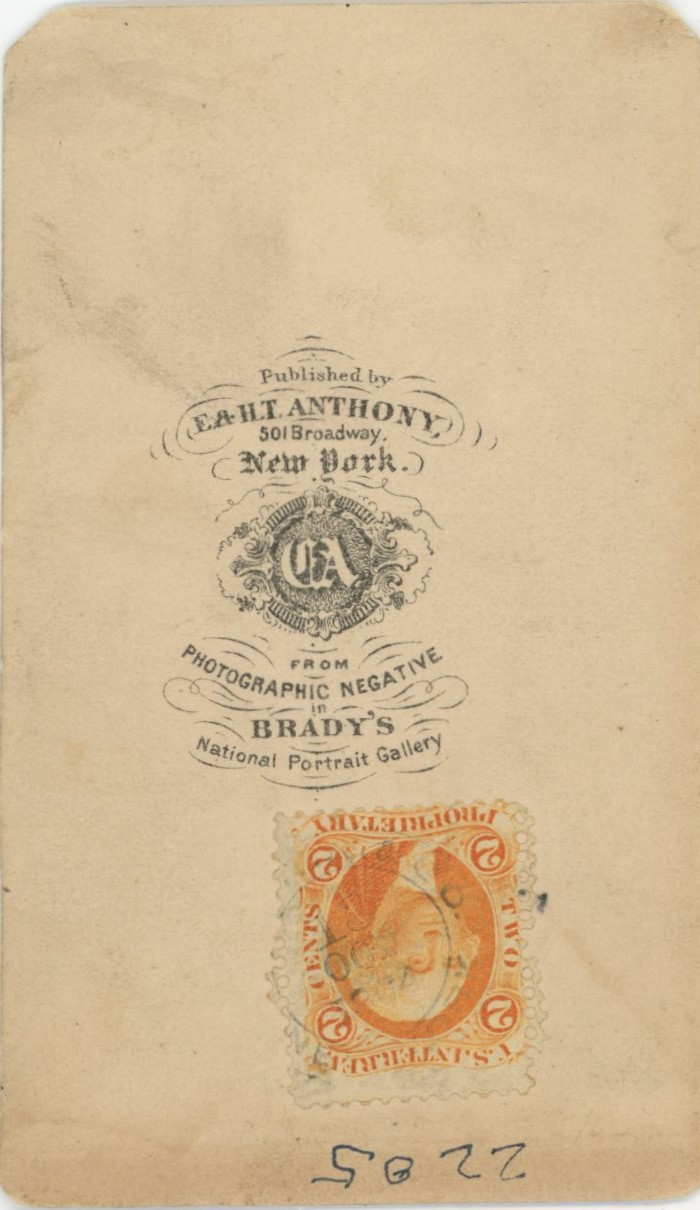 Published by
E. & H.T. ANTHONY,
501 Broadway.
New York.
FROM
PHOTOGRAPHIC NEGATIVE
in
BRADY'S
National Portrait Gallery
U.S. INTER. REV.
2 2
TWO CENTS
2 2
PROPRIETARY
OCT
2205